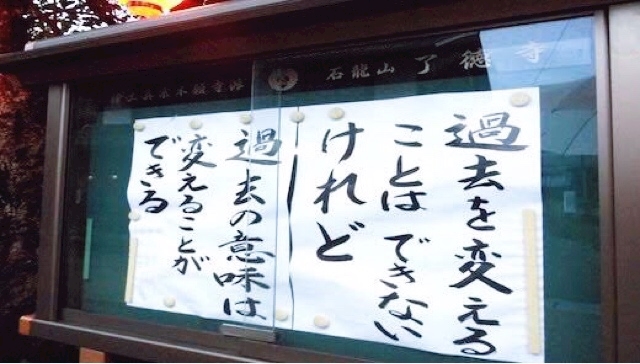 浄土真宗本願寺派
石龍山 了徳寺
過去を変える
ことは できない
けれど
過去の意味は
変えることが
できる